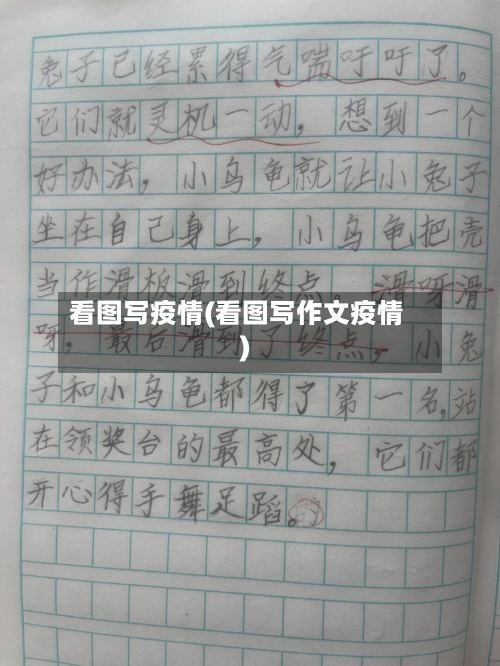 兔子已经累得气喘吁吁了。
它们就灵机一动，想到一个
好办法，小乌龟就让小兔子
坐在自己身上，小乌龟把壳
当作滑板滑到终点，滑呀滑
看图写疫情(看图写作文疫情
)
呀，最后滑到了终点，小兔
子和小乌龟都得了第一名,站
在领奖台的最高处，它们都
开心得手舞足蹈。